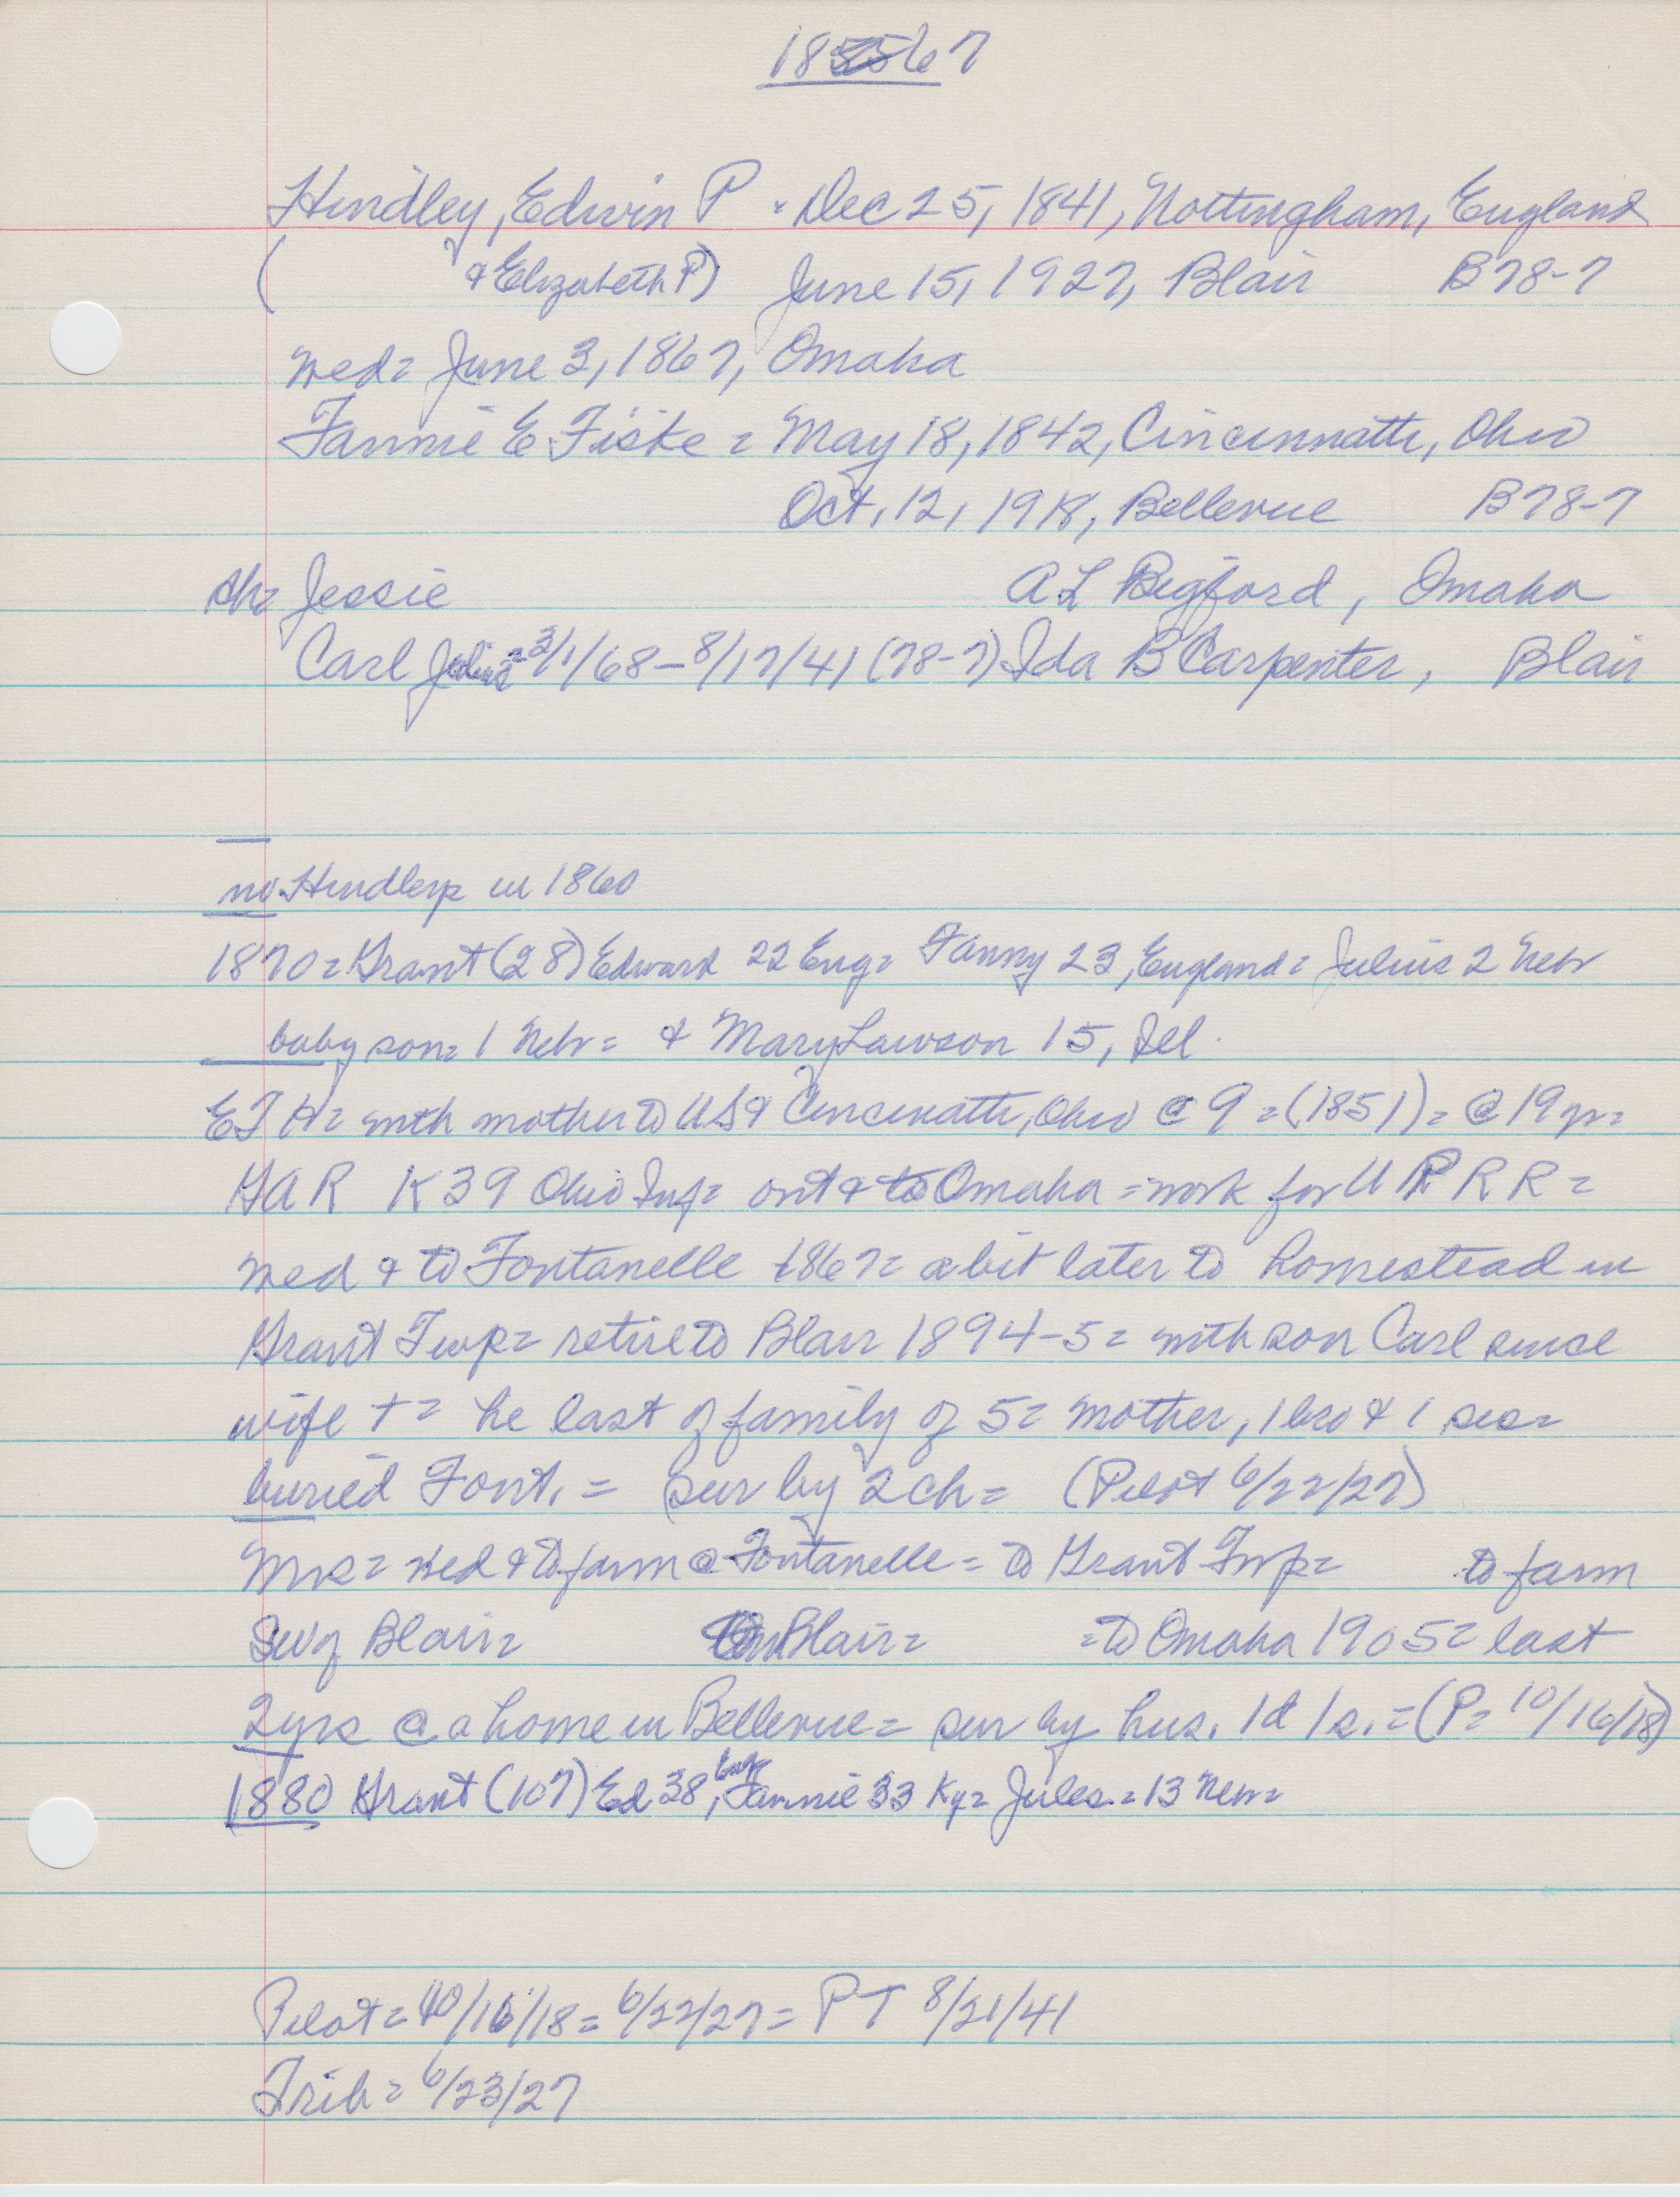 1867
Hindley, Edwin P = Dec 25, 1841, Nottingham, England
( & Elizabeth P) June 15, 1927, Blair B78-7
wed = June 3, 1867, Omaha
Fannie E. Fiske = May 18, 1842, Cincinnatti, Ohio
Oct. 12, 1918, Bellevue B78-7
ch= Jessie A L Bigford, Omaha
Carl Julius = 3/1/68 - 8/17/41 (78-7) Ida B Carpenter, Blair
no Hindleys in 1860
1870 = Grant (28) Edward 22 Eng = Fanny 23, England = Julius 2 Nebr
baby son = 1 Nebr = & Mary Lawson 15, Ill.
E H = with mother to US & Cincinatti, Ohio @ 9 = (1851) = @ 19 yr =
GAR K 39 Ohio Inf = out & to Omaha = work for U P R R =
wed & to Fontanelle 1867 = a bit later to homestead in
Grant Twp = retire to Blair 1894-5 = with son Carl since
wife + = he last of family of 5 = mother, 1 bro & 1 sis =
buried Font. = sur by 2 ch = (Pilot 6/22/27)
Mrs = wed & to farm @ Fontanelle = to Grant Twp = to farm
SW of Blair = Blair = = to Omaha 1905 = last
2 yrs @ a home in Bellevue = sur by hus. 1d 1s. = (P = 10/16/18)
1880 Grant (107) Ed 38, Eng Fannie 33 Ky = Jules = 13 Nebr =
Pilot = 10/16/18 = 6/22/27 = PT 8/21/41
Trib = 6/23/27